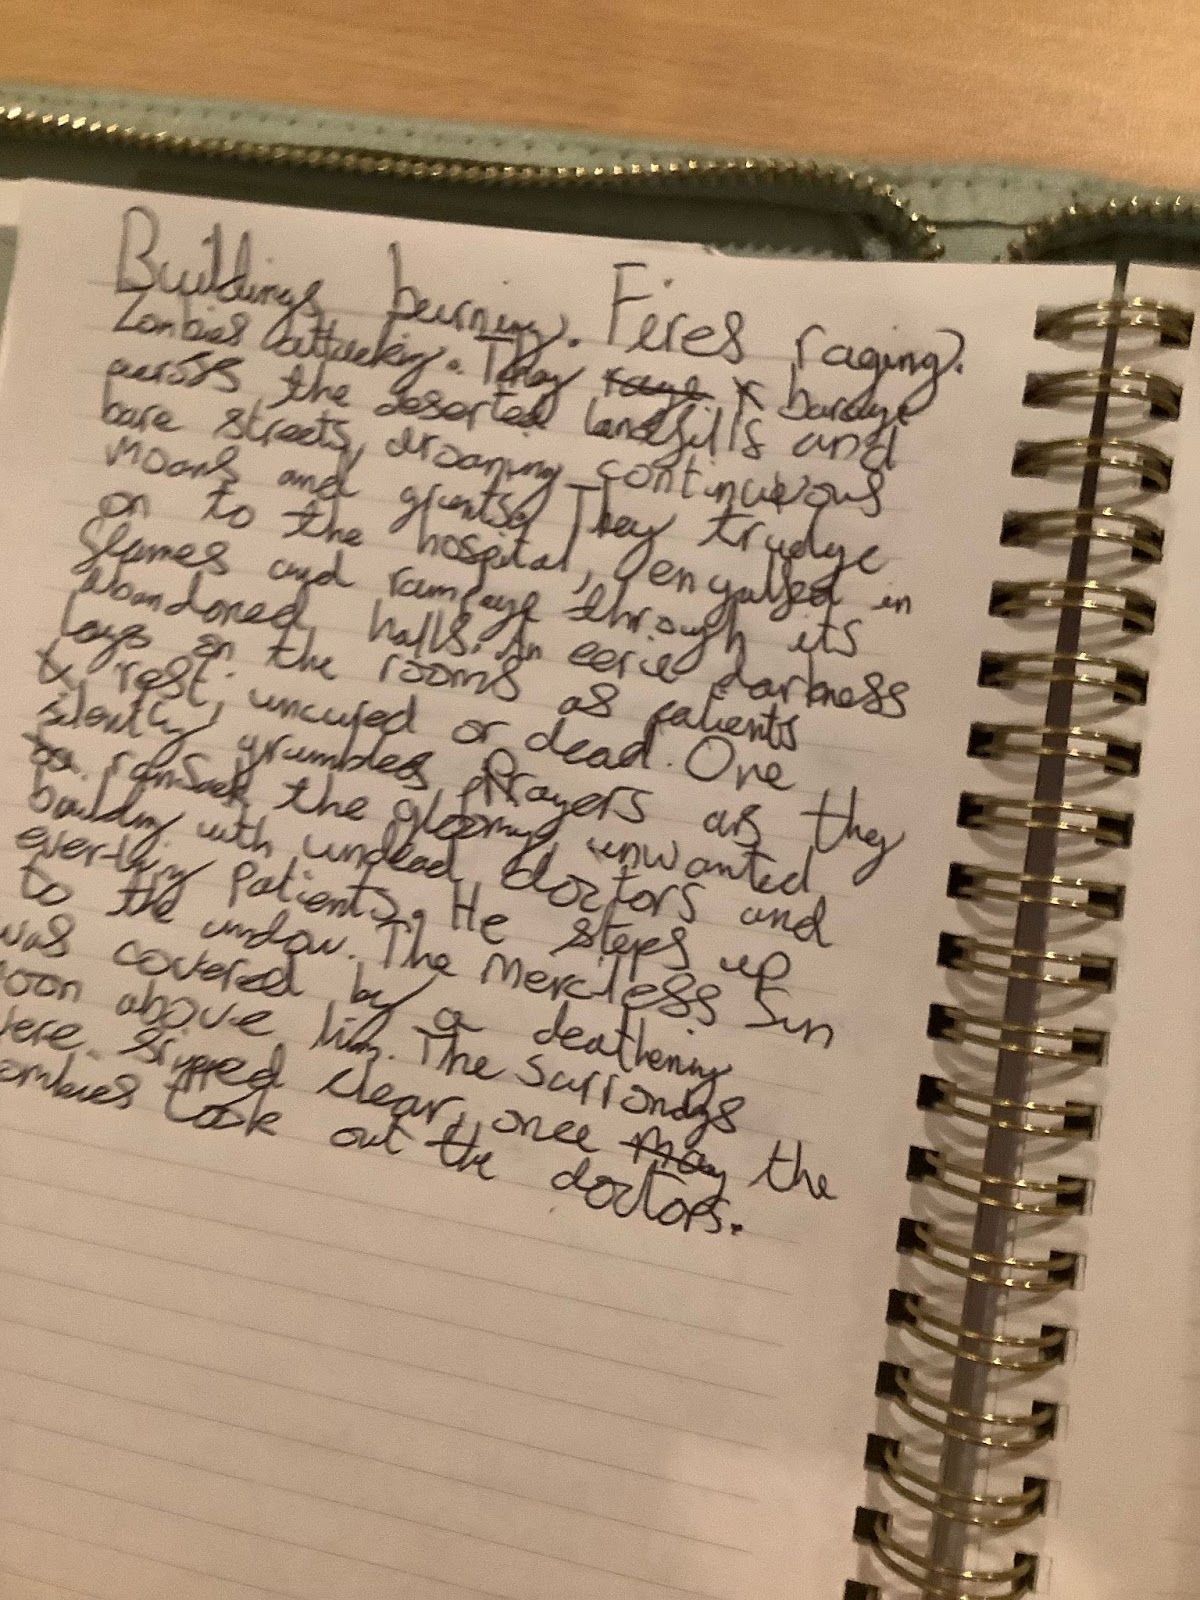 Buildings burning. Fires raging.
Zombies attacking. They rage barage
across the deserted landfills and
bare streets, droaning continuous
moans and grunts. They trudge
on to the hospital, engulfed in
flames and rampage through its
abandoned halls. An eerie darkness
lays on the rooms as patients
rest, uncured or dead. One
silently grumbles prayers as they
ransack the gloomy, unwanted
building with undead doctors and
ever-lying patients. He steps up
to the window. The merciless sun
was covered by a deathening
moon above him. The surrondgs
were stripped clear, once may the
zombies took out the doctors.